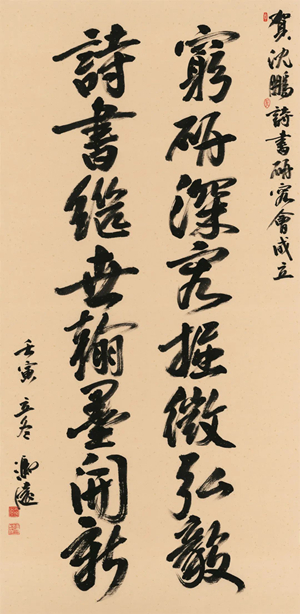 贺沈鹏詩書研究會成立
窮研深究掘微弘毅
詩書繼世翰墨開新
壬寅立冬